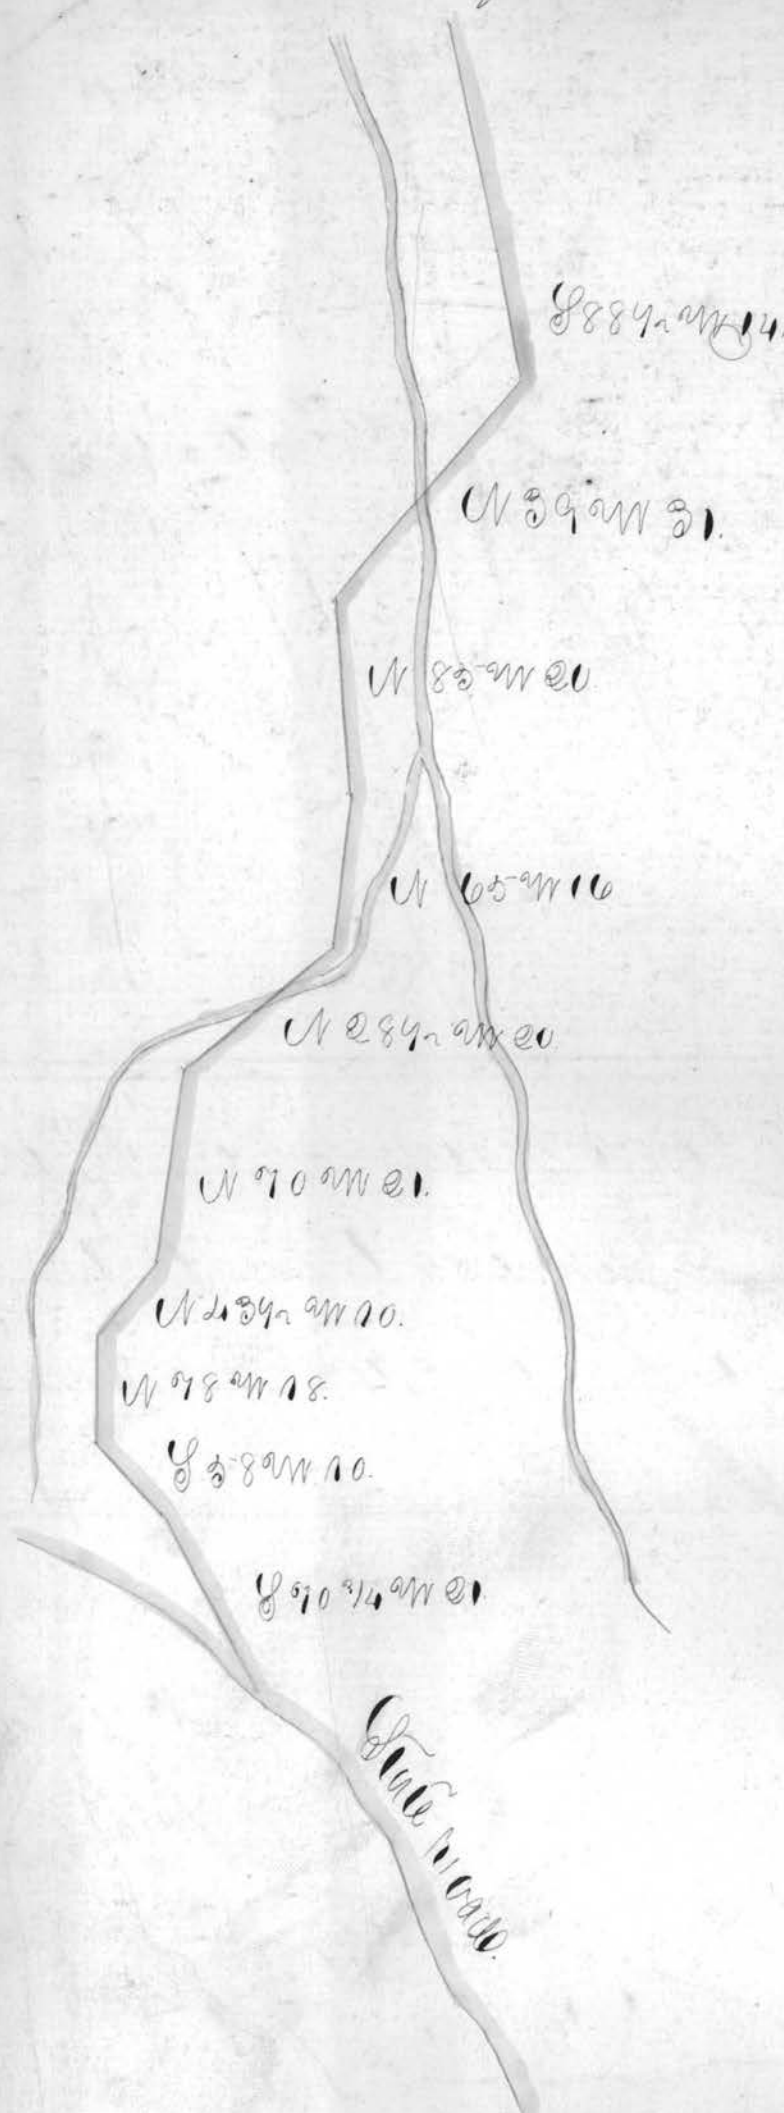 S 88½ W 14.
N 39 W 31.
N 85 W 20.
N 65 W 16
N 28½ W 20.
N 70 W 21.
N 43½ W 10.
N 78 W 18.
S 58 W 10.
S 70¾ W 21.
State road.